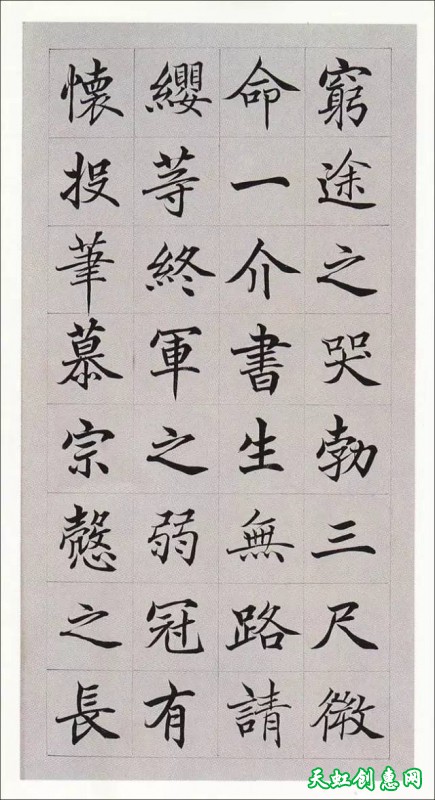 窮途之哭勃三尺微
命一介書生無路請
纓等終軍之弱冠有
懷投筆慕宗愨之長
天虹创惠网